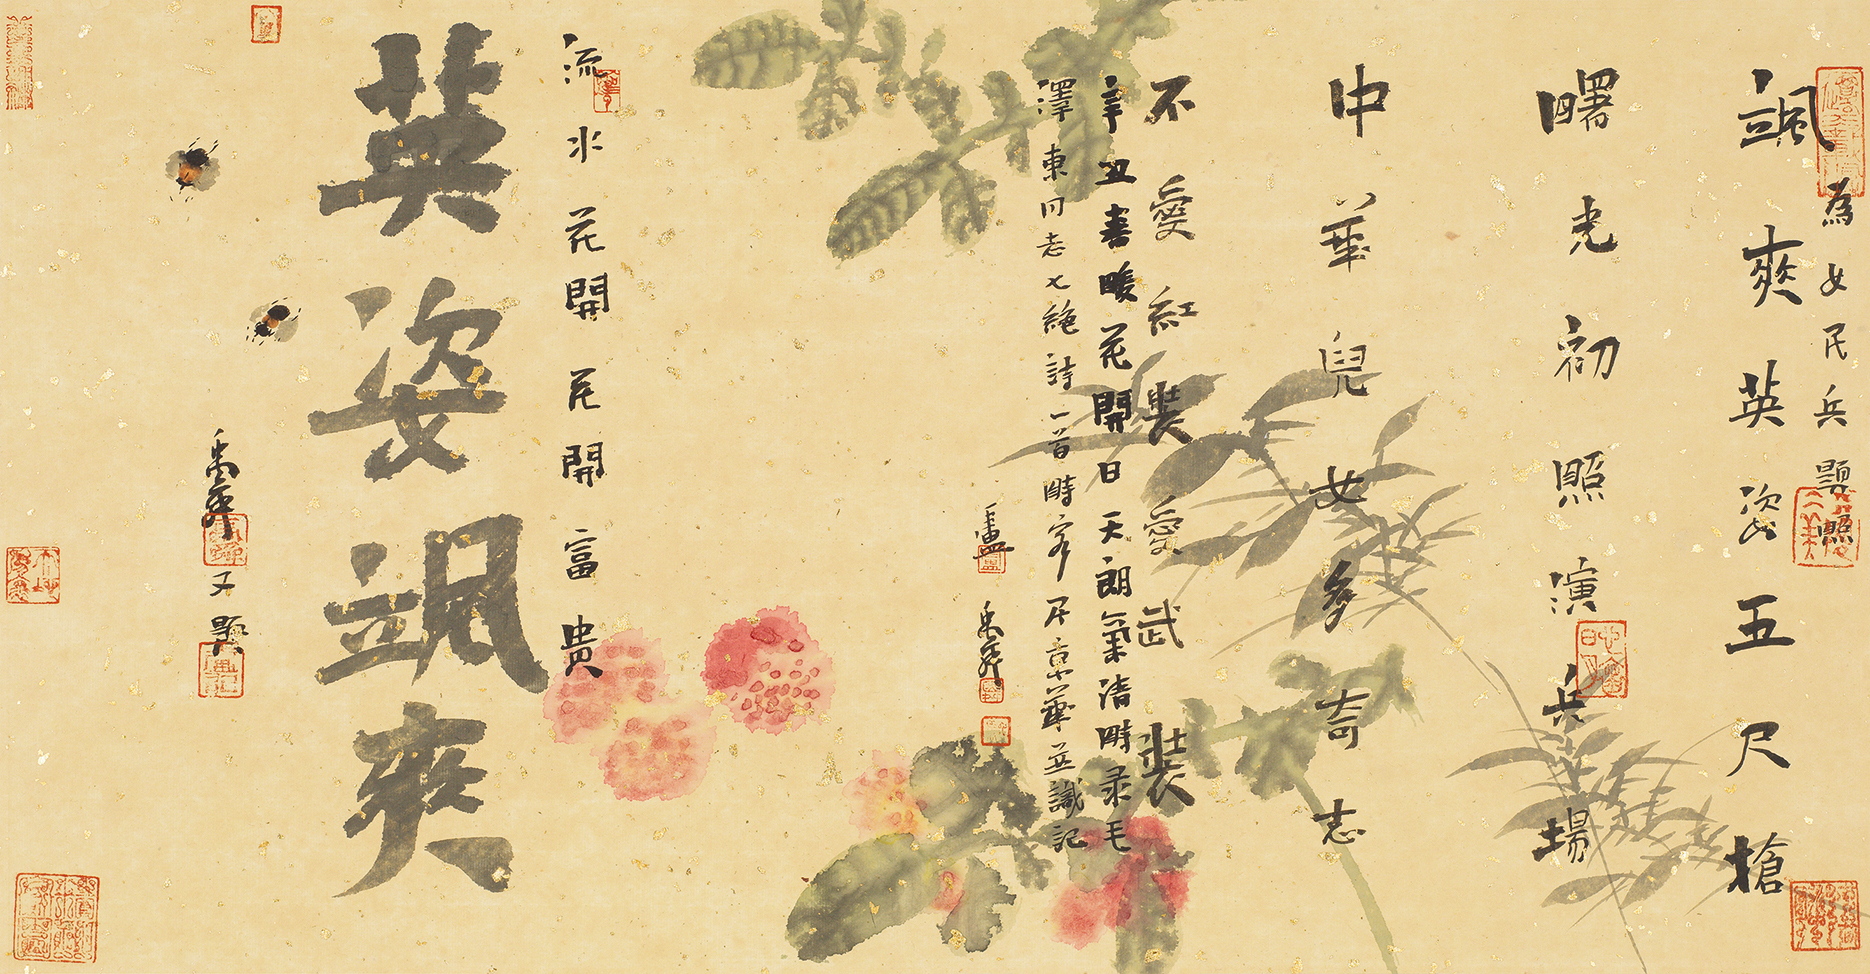 為女民兵題照
颯爽英姿五尺槍
曙光初照演兵場
中華兒女多奇志
不愛紅裝愛武裝
辛丑春暖花開日天朗氣清時录毛
澤東同志七絶詩一首時客居京華並識記
流水花開花開富貴
英姿颯爽
又題